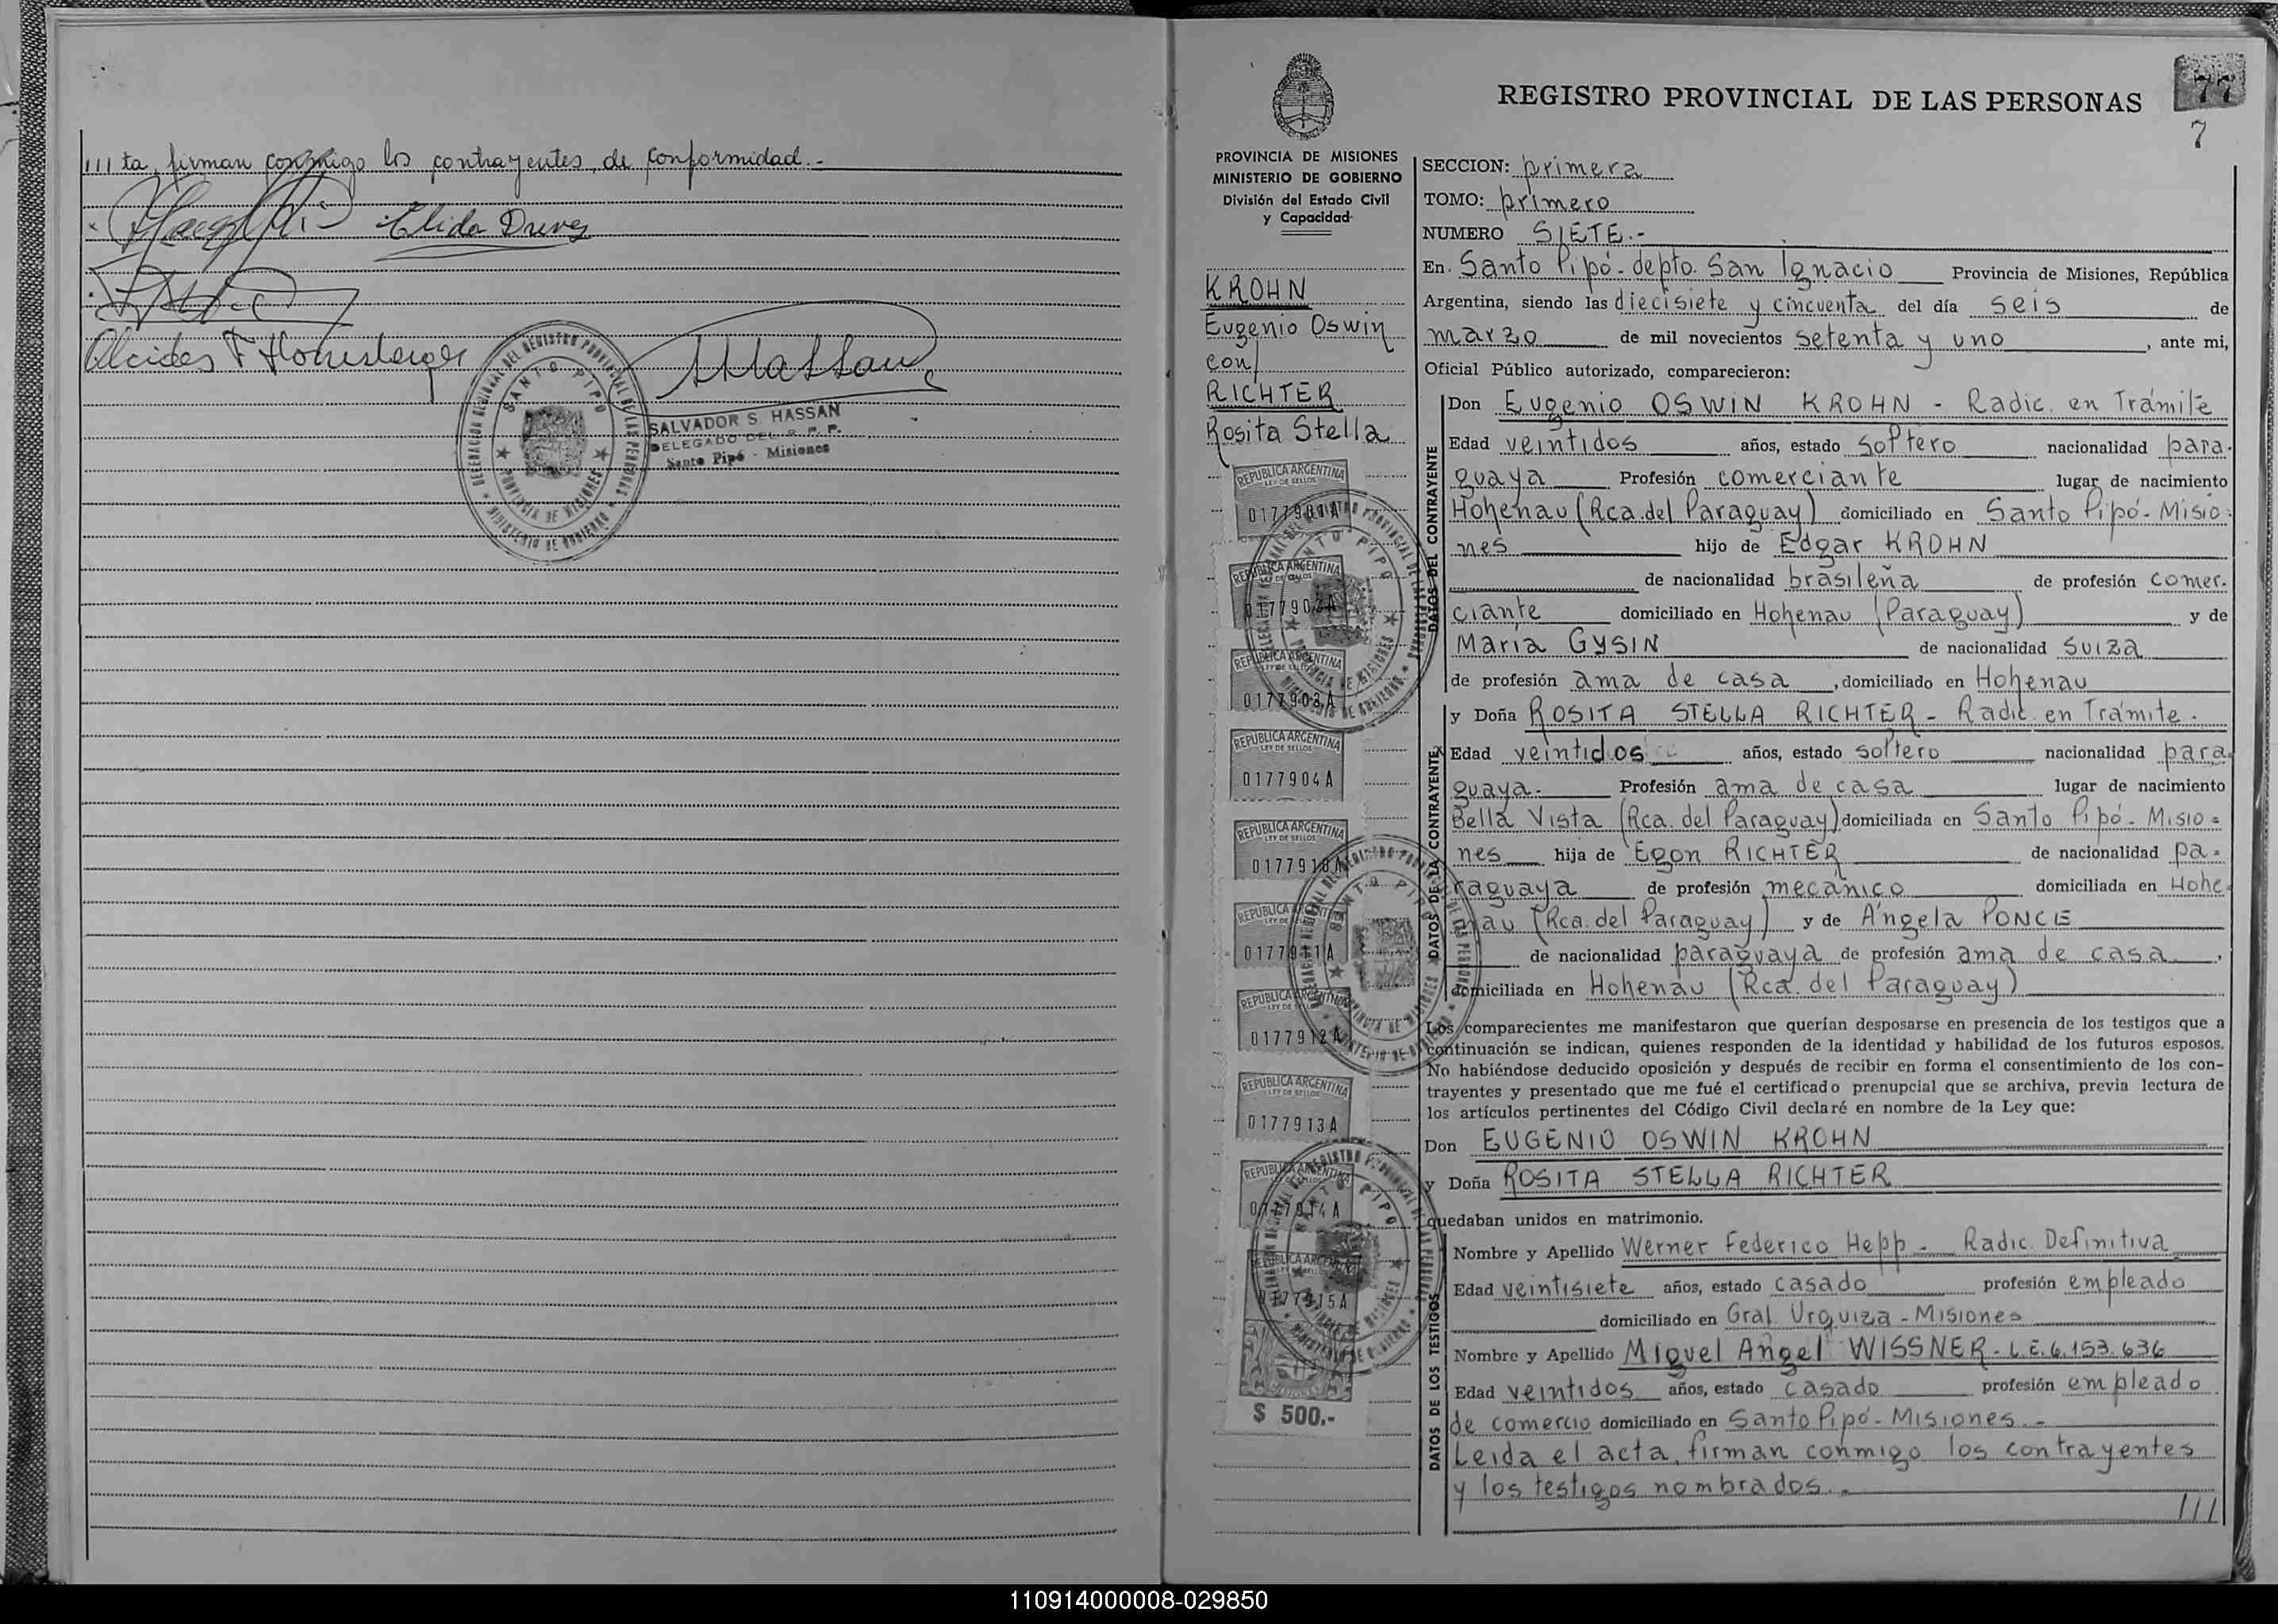 /// ta, firman conmigo los contrayentes, de conformidad.-
Elida Drews
Alcides F Honisberger
DELEGACION REGIONAL DEL REGISTRO PROVINCIAL DE LAS PERSONAS
SANTO PIPO
PROVINCIA DE MISIONES
MINISTERIO DE GOBIERNO
SALVADOR S. HASSAN
DELEGADO DEL R. P. P.
Santo Pipó - Misiones
REGISTRO PROVINCIAL DE LAS PERSONAS
77
7
PROVINCIA DE MISIONES
MINISTERIO DE GOBIERNO
División del Estado Civil
y Capacidad
KROHN
Eugenio Oswin
con/
RICHTER
Rosita Stella
REPUBLICA ARGENTINA
LEY DE SELLOS
0177901A
REPUBLICA ARGENTINA
LEY DE SELLOS
0177902A
REPUBLICA ARGENTINA
LEY DE SELLOS
0177903A
REPUBLICA ARGENTINA
LEY DE SELLOS
0177904A
REPUBLICA ARGENTINA
LEY DE SELLOS
0177910A
REPUBLICA ARGENTINA
LEY DE SELLOS
0177911A
REPUBLICA ARGENTINA
LEY DE SELLOS
0177912A
REPUBLICA ARGENTINA
LEY DE SELLOS
0177913A
REPUBLICA ARGENTINA
0177914A
REPUBLICA ARGENTINA
0177915A
MISIONES
$ 500.-
SECCION: primera
TOMO: primero
NUMERO SIETE.-
En Santo Pipó- depto. San Ignacio Provincia de Misiones, República
Argentina, siendo las diecisiete y cincuenta del día seis de
marzo de mil novecientos setenta y uno, ante mi,
Oficial Público autorizado, comparecieron:
DATOS DEL CONTRAYENTE
Don Eugenio OSWIN KROHN - Radic. en Trámite
Edad veintidos años, estado soltero nacionalidad para-
guaya Profesión comerciante lugar de nacimiento
Hohenau (Rca. del Paraguay) domiciliado en Santo Pipó- Misio-
nes hijo de Edgar KROHN
de nacionalidad brasileña de profesión comer-
ciante domiciliado en Hohenau (Paraguay) y de
María GYSIN de nacionalidad suiza
de profesión ama de casa, domiciliado en Hohenau
DATOS DE LA CONTRAYENTE
y Doña ROSITA STELLA RICHTER - Radic. en Trámite.
Edad veintidos años, estado soltero nacionalidad para
guaya- Profesión ama de casa lugar de nacimiento
Bella Vista (Rca. del Paraguay) domiciliada en Santo Pipó- Misio=
nes hija de Egon RICHTER de nacionalidad pa=
raguaya de profesión mecánico domiciliada en Hohe
nau (Rca. del Paraguay) y de Ángela PONCE
de nacionalidad paraguaya de profesión ama de casa,
domiciliada en Hohenau (Rca. del Paraguay)
Los comparecientes me manifestaron que querían desposarse en presencia de los testigos que a
continuación se indican, quienes responden de la identidad y habilidad de los futuros esposos.
No habiéndose deducido oposición y después de recibir en forma el consentimiento de los con-
trayentes y presentado que me fué el certificado prenupcial que se archiva, previa lectura de
los artículos pertinentes del Código Civil declaré en nombre de la Ley que:
Don EUGENIO OSWIN KROHN
y Doña ROSITA STELLA RICHTER
quedaban unidos en matrimonio.
DATOS DE LOS TESTIGOS
Nombre y Apellido Werner Federico Hepp - Radic. Definitiva
Edad veintisiete años, estado casado profesión empleado
domiciliado en Gral Urquiza - Misiones
Nombre y Apellido Miguel Angel WISSNER- L.E. 6.153.636
Edad veintidos años, estado casado profesión empleado
de comercio domiciliado en Santo Pipó- Misiones.-
Leida el acta, firman conmigo los contrayentes
y los testigos nombrados.-
///
110914000008-029850